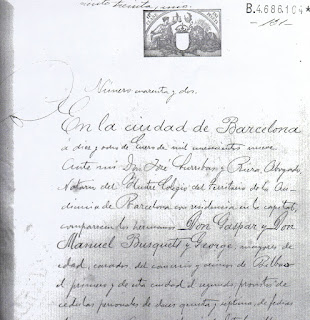 B.4.686.104*
Número cuarenta y dos.
En la ciudad de Barcelona
a diez y ocho de Enero de mil novecientos nueve.
Ante mí Don José y Riera, Abogado,
Notario del Ilustre Colegio del Territorio de la Au-
diencia de Barcelona con residencia en la capital,
comparecen los hermanos Don Gaspar y Don
Manuel Busquets y George, mayores de
edad, casados, del comercio y vecinos de Bilbao
el primero y de esta ciudad el segundo, provistos de
cédulas personales de clases quinta y séptima, de fechas